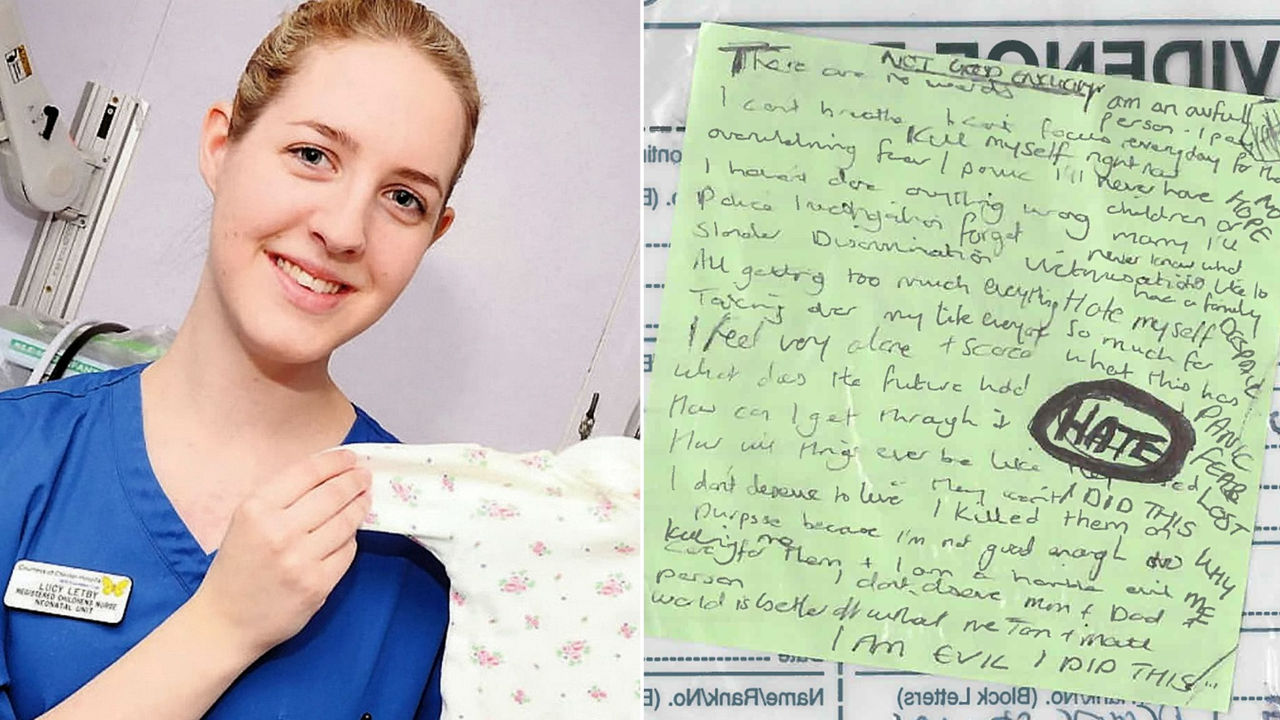 Countess of Chester Hospital
LUCY LETBY
REGISTERED CHILDRENS NURSE
NEONATAL UNIT
VIDENCE
NOT GOOD ENOUGH
There are no words
I am an awful person . I pay everyday for that
I can't breathe I can't focus
Kill myself right now
overwhelming fear / panic
I'll never have children or marry I'll never know what
NO HOPE
I haven't done anything wrong
Police investigation forget
Slander Discrimination Victimisation
like to have a family
All getting too much everything
Hate myself so much for what this has
DESPAIR
Taking over my life everyone
I feel very alone + scared
What does the future hold
How can I get through it
HATE
PANIC
FEAR
LOST
How will things ever be like they
I DID THIS
I don't deserve to live I killed them on
purpose because I'm not good enough to
WHY ME
care for them + I am a horrible evil
person I don't deserve mum + Dad
killing me
world is better off without me
I AM EVIL I DID THIS
Date
Name/Rank/No.
(Block Letters)
Name/Rank/No. (